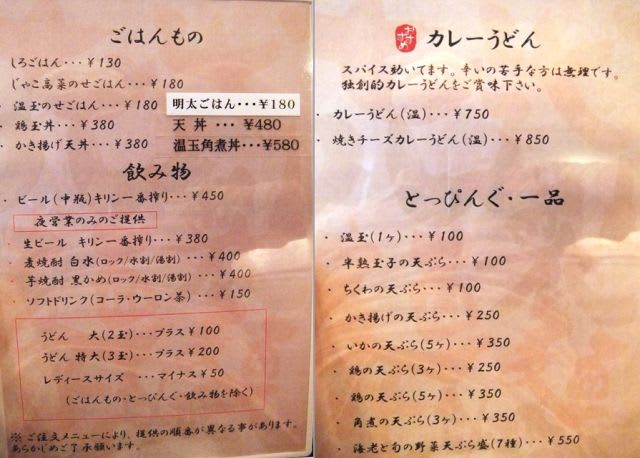 ごはんもの
しろごはん・・・¥130
じゃこ高菜のせごはん・・・¥180
温玉のせごはん・・・¥180
明太ごはん・・・¥180
鶏玉丼・・・¥380
天丼・・・¥480
かき揚げ天丼・・・¥380
温玉角煮丼・・・¥580
飲み物
ビール(中瓶)キリン一番搾り・・・¥450
夜営業のみのご提供
生ビール キリン一番搾り・・・¥380
麦焼酎 白水(ロック/水割/湯割)・・・¥400
芋焼酎 黒かめ(ロック/水割/湯割)・・・¥400
ソフトドリンク(コーラ・ウーロン茶)・・・¥150
うどん 大(2玉)・・・プラス¥100
うどん 特大(3玉)・・・プラス¥200
レディースサイズ ・・・マイナス¥50
(ごはんもの・とっぴんぐ・飲み物を除く)
※ご注文メニューにより、提供の順番が異なる事があります。
あらかじめご了承願います。
おすすめ
カレーうどん
スパイス効いてます。辛いの苦手な方は無理です。
独創的カレーうどんをご賞味下さい。
カレーうどん(温)・・・¥750
焼きチーズカレーうどん(温)・・・¥850
とっぴんぐ・一品
温玉(1ヶ)・・・¥100
半熟玉子の天ぷら・・・¥100
ちくわの天ぷら・・・¥100
かき揚げの天ぷら・・・¥250
いかの天ぷら(5ヶ)・・・¥350
鶏の天ぷら(3ヶ)・・・¥250
鶏の天ぷら(5ヶ)・・・¥350
角煮の天ぷら(3ヶ)・・・¥350
海老と旬の野菜天ぷら盛(7種)・・・¥550